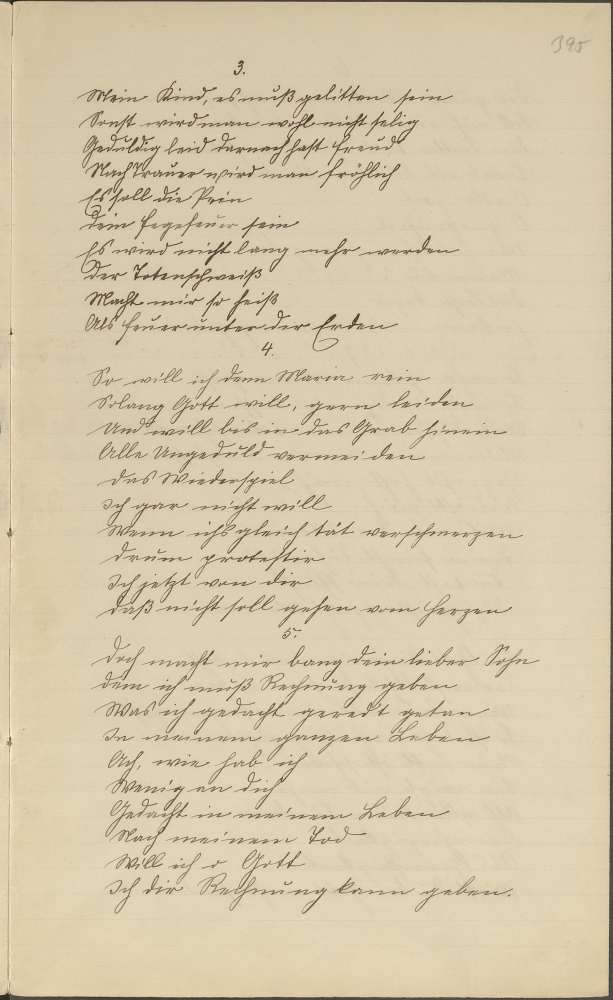 395
3.
Mein Kind, es muß gelitten sein
Sonst wird man wohl nicht selig
Geduldig leid darnach hast Freud
Nach Trauer wird man fröhlich
Es soll die Pein
Dein Fegefeuer sein
Es wird nicht lang mehr werden
Der Totenschweiß
Macht mir so heiß
Als Feuer unter der Erden
4.
So will ich denn Maria rein
Solang Gott will, gern leiden
Und will bis in das Grab hinein
Alle Ungeduld vermeiden
Das Wiederspiel
Ich gar nicht will
Wenn ichs gleich tät verschmerzen
Drum protestir
Ich jetzt von dir
Daß nicht soll gehen vom Herzen
5.
Doch macht mir bang dein lieber Sohn
Dem ich muß Rechnung geben
Was ich gedacht geredt getan
In meinem ganzen Leben
Ach, wie hab ich
Wenig an dich
Gedacht in meinem Leben
Nach meinem Tod
Will ich o Gott
Ich dir Rechnung kann geben.